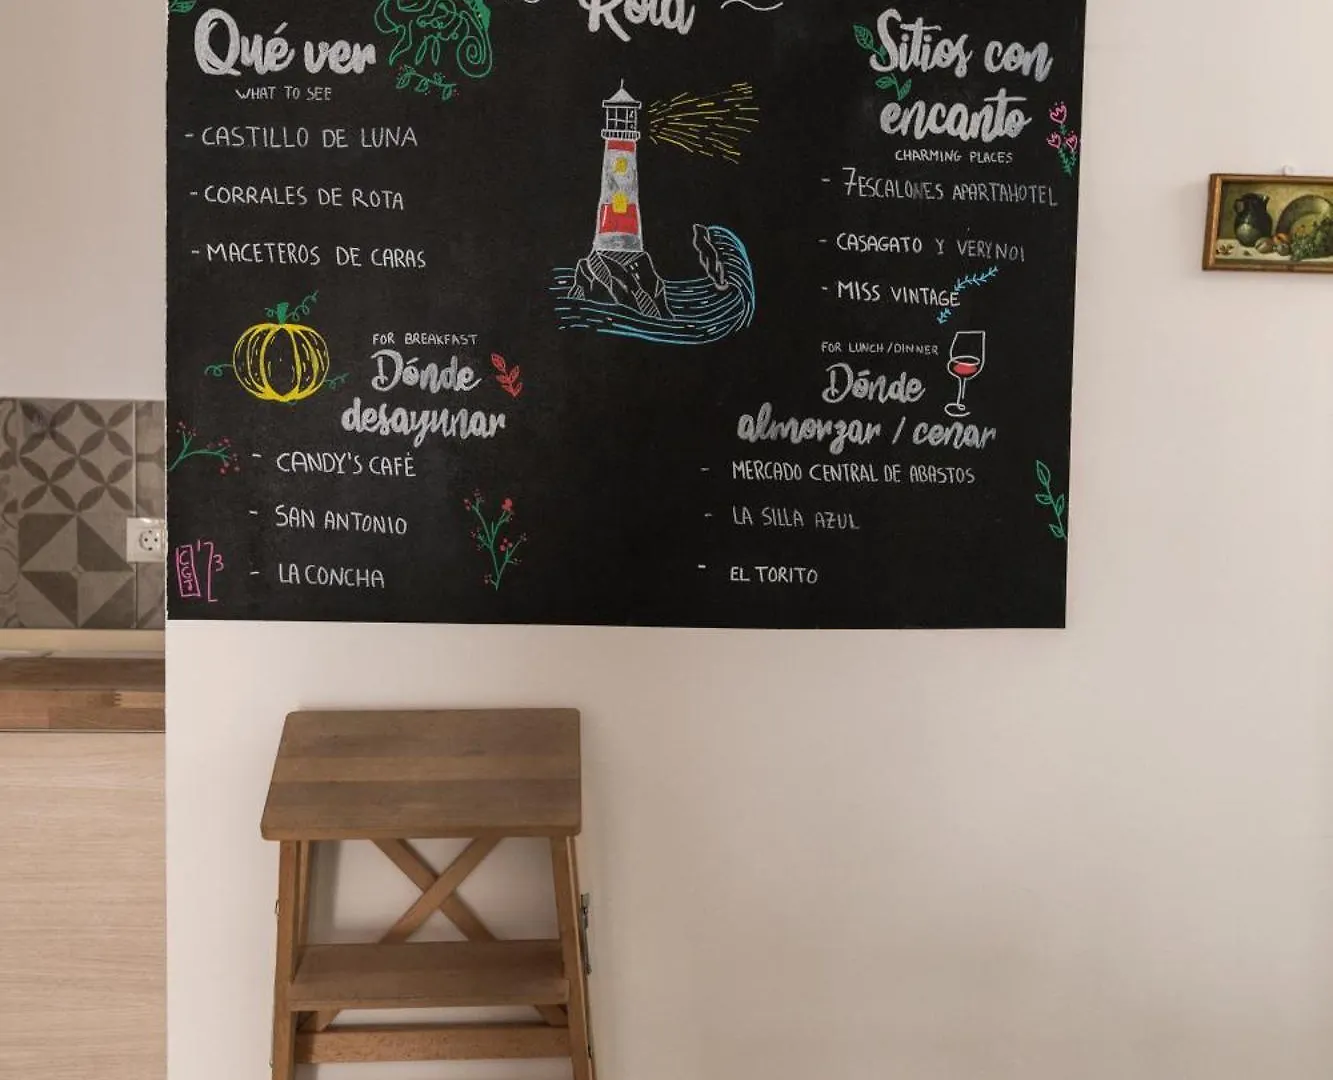 Rota
Qué ver
WHAT TO SEE
- CASTILLO DE LUNA
- CORRALES DE ROTA
- MACETEROS DE CARAS
FOR BREAKFAST
Dónde
desayunar
- CANDY'S CAFÉ
- SAN ANTONIO
- LA CONCHA
Sitios con
encanto
CHARMING PLACES
- 7ESCALONES APARTAHOTEL
- CASAGATO Y VERYNOI
- MISS VINTAGE
FOR LUNCH/DINNER
Dónde
almorzar / cenar
- MERCADO CENTRAL DE ABASTOS
- LA SILLA AZUL
- EL TORITO